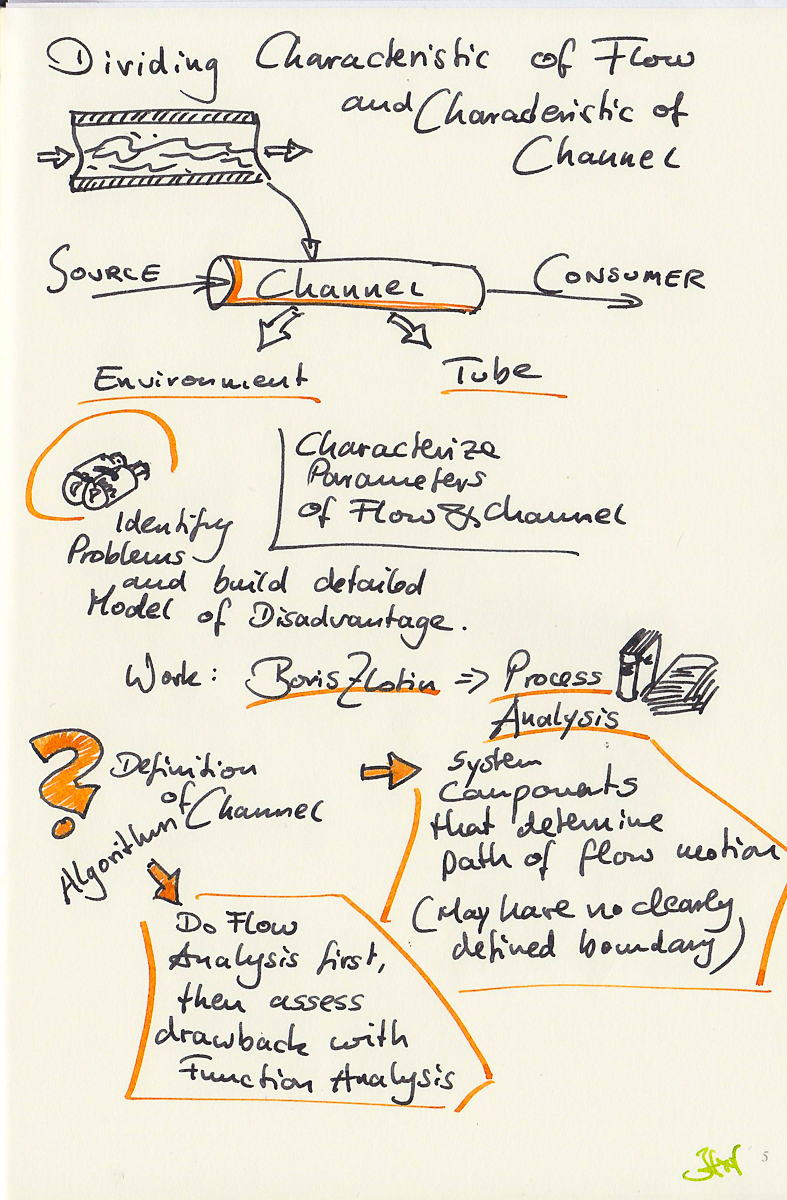 Dividing Characteristic of Flow
and Characteristic of
Channel
SOURCE
Channel
CONSUMER
Environment
Tube
Characterize
Parameters
of Flow & Channel
Identify
Problems
and build detailed
Model of Disadvantage.
Work: Boris Zlotin => Process
Analysis
? Definition
of Channel
Algorithm
System
Components
that determine
path of flow motion
(May have no clearly
defined boundary)
Do Flow
Analysis first,
then assess
drawback with
Function Analysis
5